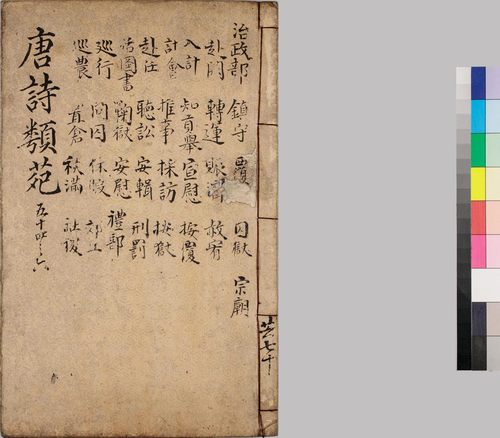 治政部 鎮守 覆 囚獄 宗廟
赴闕 轉運 賑 赦宥
入計 知貢舉 宣慰 按覆
計會 推事 採訪 批獄
赴任 聽訟 安輯 刑罰
括圖書 鞫獄 安慰 禮部
巡行 問囚 休假 郊丘
巡農 直倉 秩滿 社稷
唐詩類苑 五十四之六
共七十